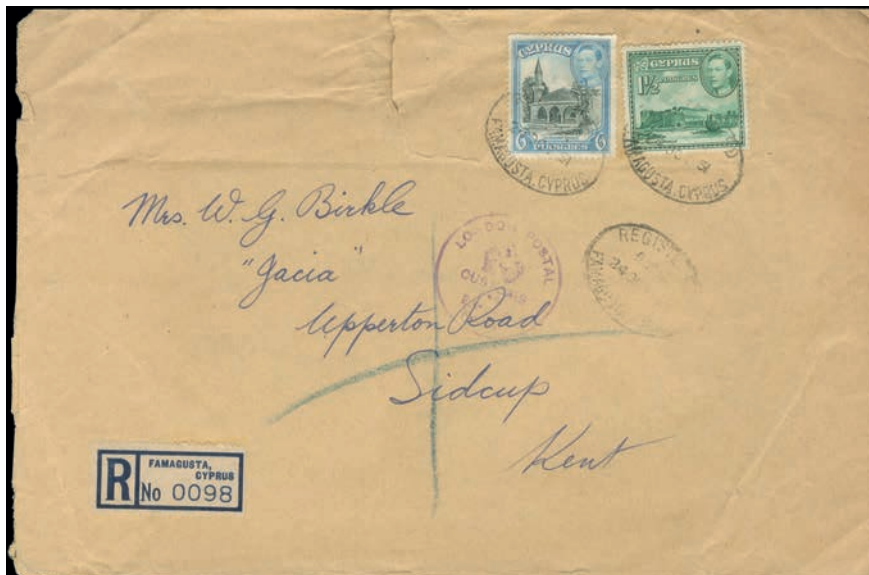 CYPRUS
6 PIASTRES 6
CYPRUS
1½
PIASTRES
FAMAGUSTA. CYPRUS
FAMAGUSTA. CYPRUS
Mrs. W. G. Birkle
"Jacia"
Upperton Road
Sidcup
Kent
LONDON POSTAL
REGIST
24
R
FAMAGUSTA,
CYPRUS
No 0098